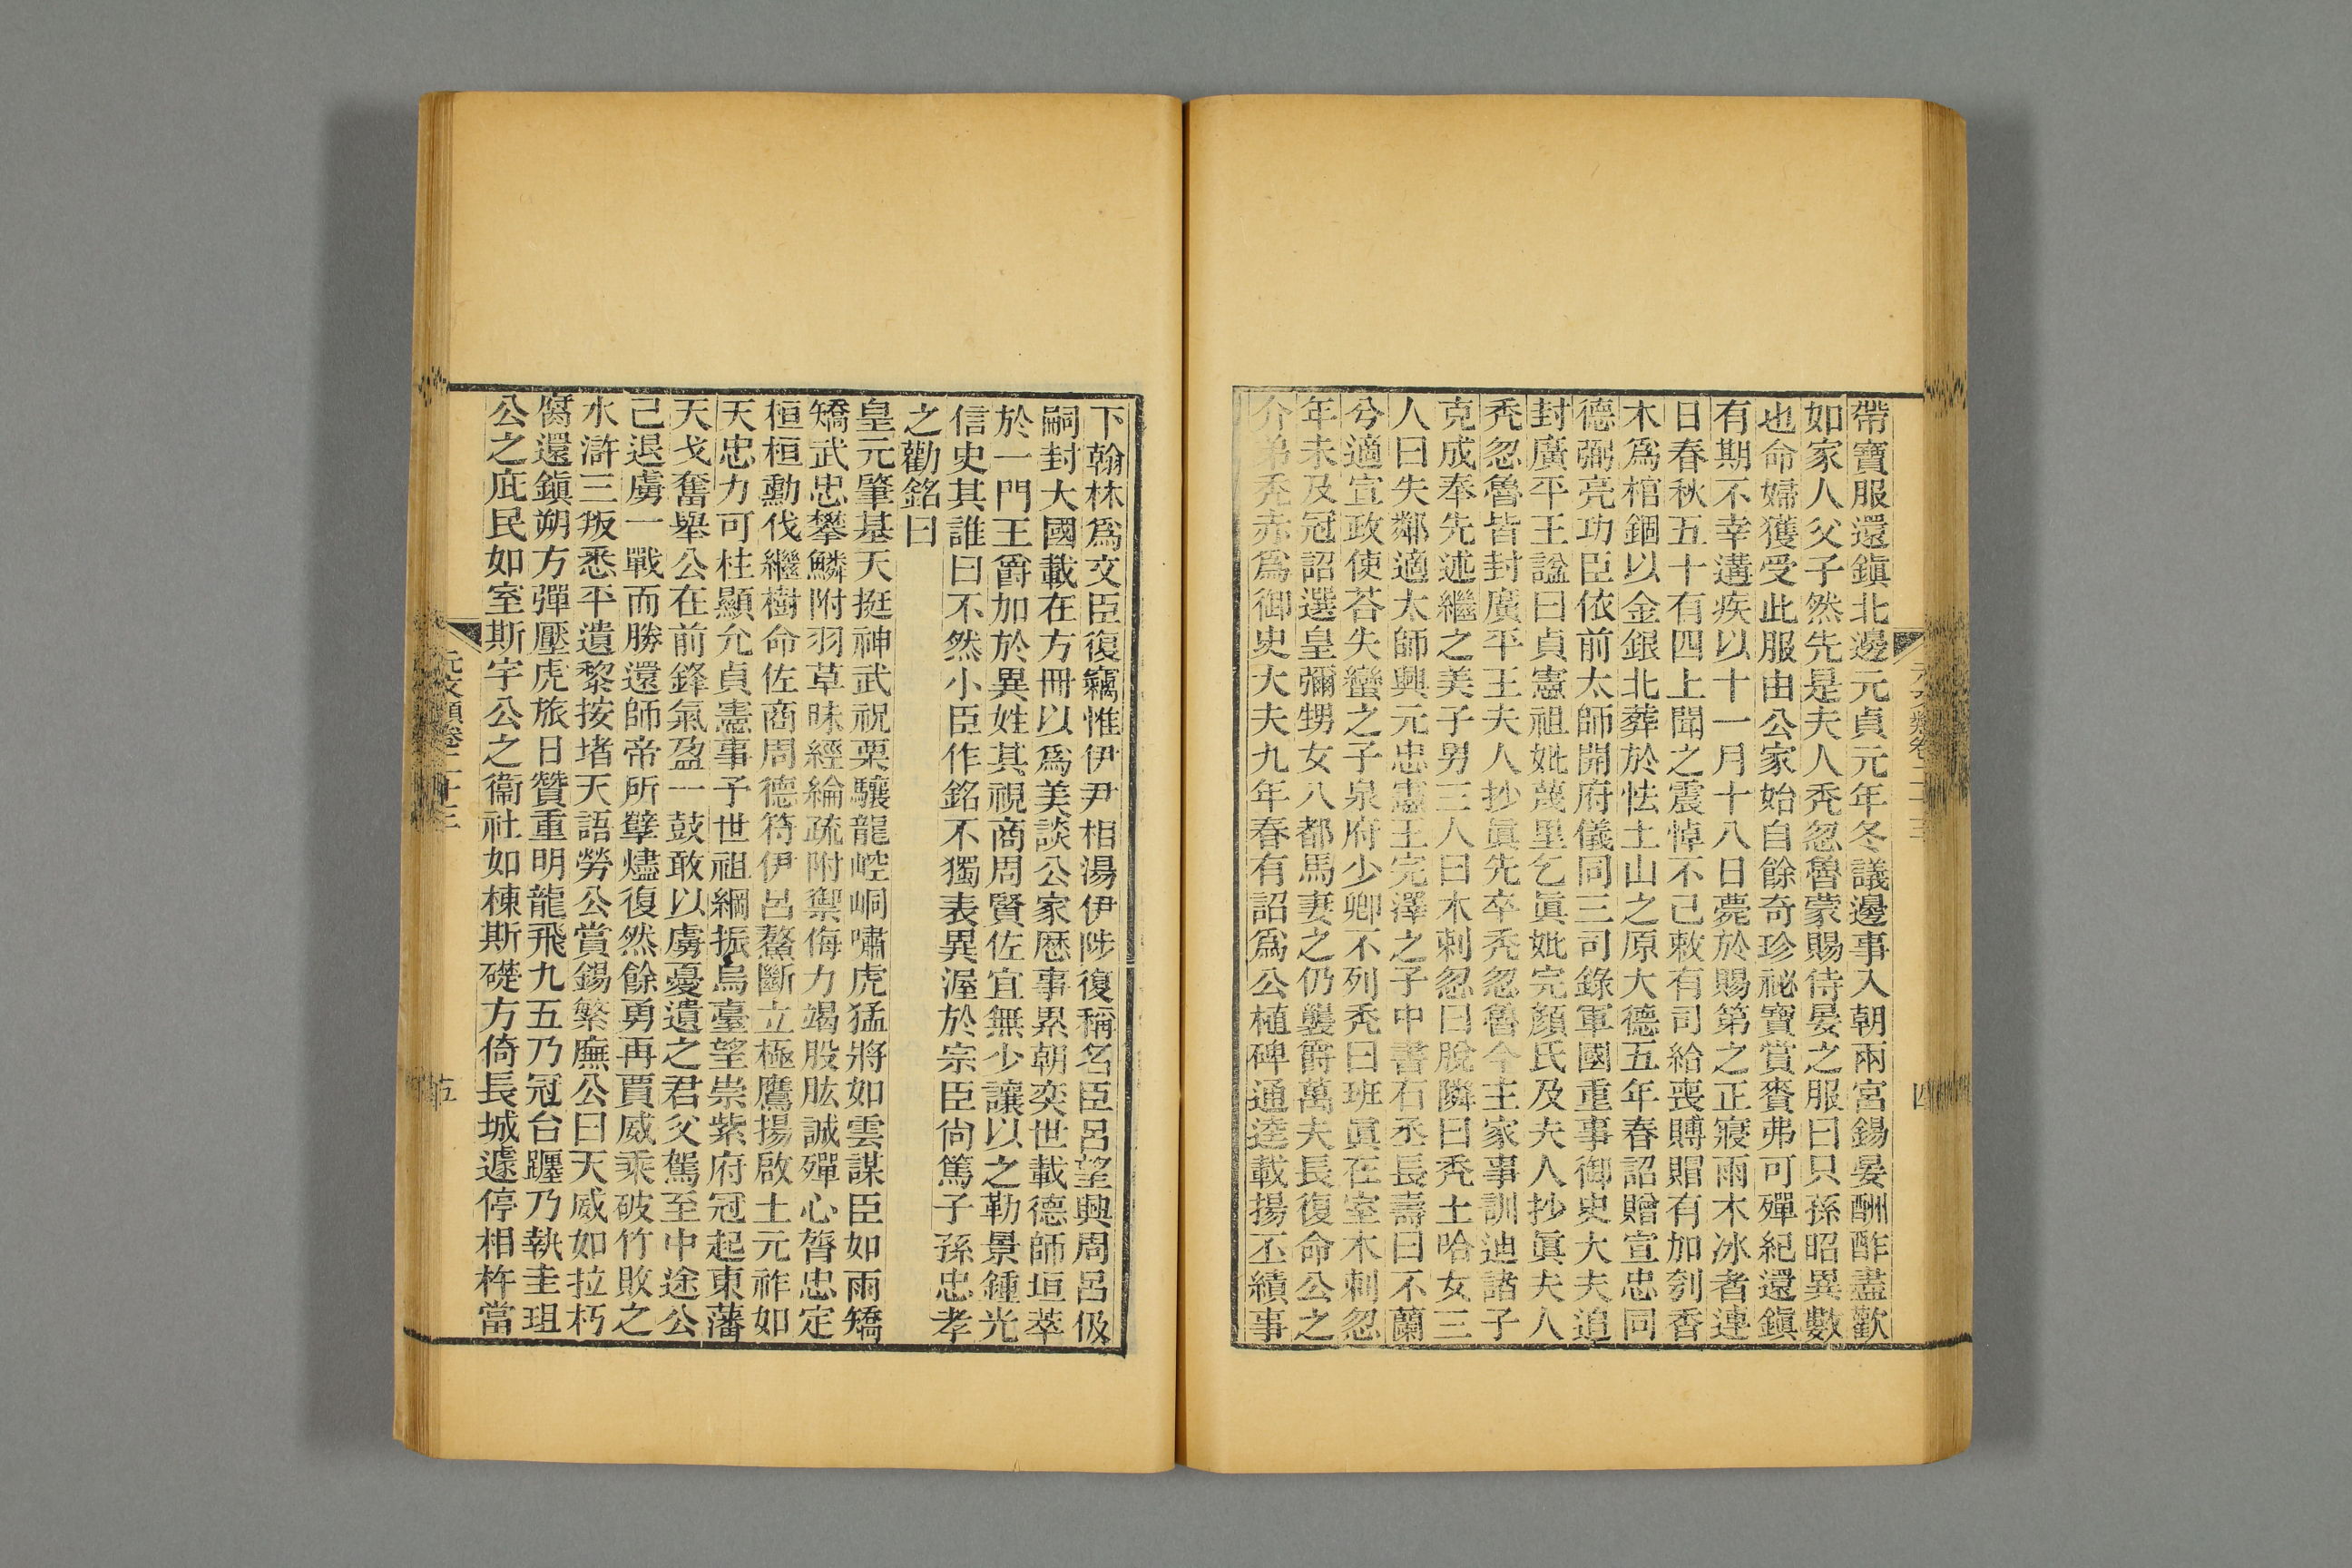 帶寶服還鎭北邊元貞元年冬議邊事入朝兩宮錫晏酬酢盡歡
如家人父子然先是夫人禿忽魯蒙賜侍晏之服曰只孫昭異數
也命婦獲受此服由公家始自餘奇珍祕寶賞賚弗可殫紀還鎭
有期不幸遘疾以十一月十八日薨於賜第之正寢雨木冰者連
日春秋五十有四上聞之震悼不已敕有司給喪賻賵有加刳香
木爲棺錮以金銀北葬於怯土山之原大德五年春詔贈宣忠同
德弼亮功臣依前太師開府儀同三司錄軍國重事御史大夫追
封廣平王諡曰貞憲祖妣蔑里乞眞妣完顏氏及夫人抄眞夫人
禿忽魯皆封廣平王夫人抄眞先卒禿忽魯今主家事訓迪諸子
克成奉先述繼之美子男三人曰木剌忽曰脫隣曰禿土哈女三
人曰失鄰適太師興元忠憲王完澤之子中書右丞長壽曰不蘭
兮適宣政使荅失蠻之子泉府少卿不列禿曰班眞在室木剌忽
年未及冠詔選皇彌甥女八都馬妻之仍襲爵萬夫長復命公之
介弟禿赤爲御史大夫九年春有詔爲公植碑通逵載揚丕績事
元文類卷二十三
四
下翰林爲文臣復竊惟伊尹相湯伊陟復稱名臣呂望興周呂伋
嗣封大國載在方冊以爲美談公家歷事累朝奕世載德師垣萃
於一門王爵加於異姓其視商周賢佐宜無少讓以之勒景鍾光
信史其誰曰不然小臣作銘不獨表異渥於宗臣尙篤子孫忠孝
之勸銘曰
皇元肇基天挺神武祝栗驤龍崆峒嘯虎猛將如雲謀臣如雨矯
矯武忠攀鱗附羽草昧經綸疏附禦侮力竭股肱誠殫心膂忠定
桓桓勳伐繼樹命佐商周德符伊呂鰲斷立極鷹揚啟土元祚如
天忠力可柱顯允貞憲事予世祖綱振烏臺望崇紫府冠起東藩
天戈奮舉公在前鋒氣盈一鼓敢以虜憂遺之君父駕至中途公
已退虜一戰而勝還師帝所孽燼復然餘勇再賈威乘破竹敗之
水滸三叛悉平遺黎按堵天語勞公賞錫繁廡公曰天威如拉朽
腐還鎭朔方彈壓虎旅日贊重明龍飛九五乃冠台躔乃執圭珇
公之庇民如室斯宇公之衞社如棟斯礎方倚長城遽停相杵當
元文類卷二十三
五